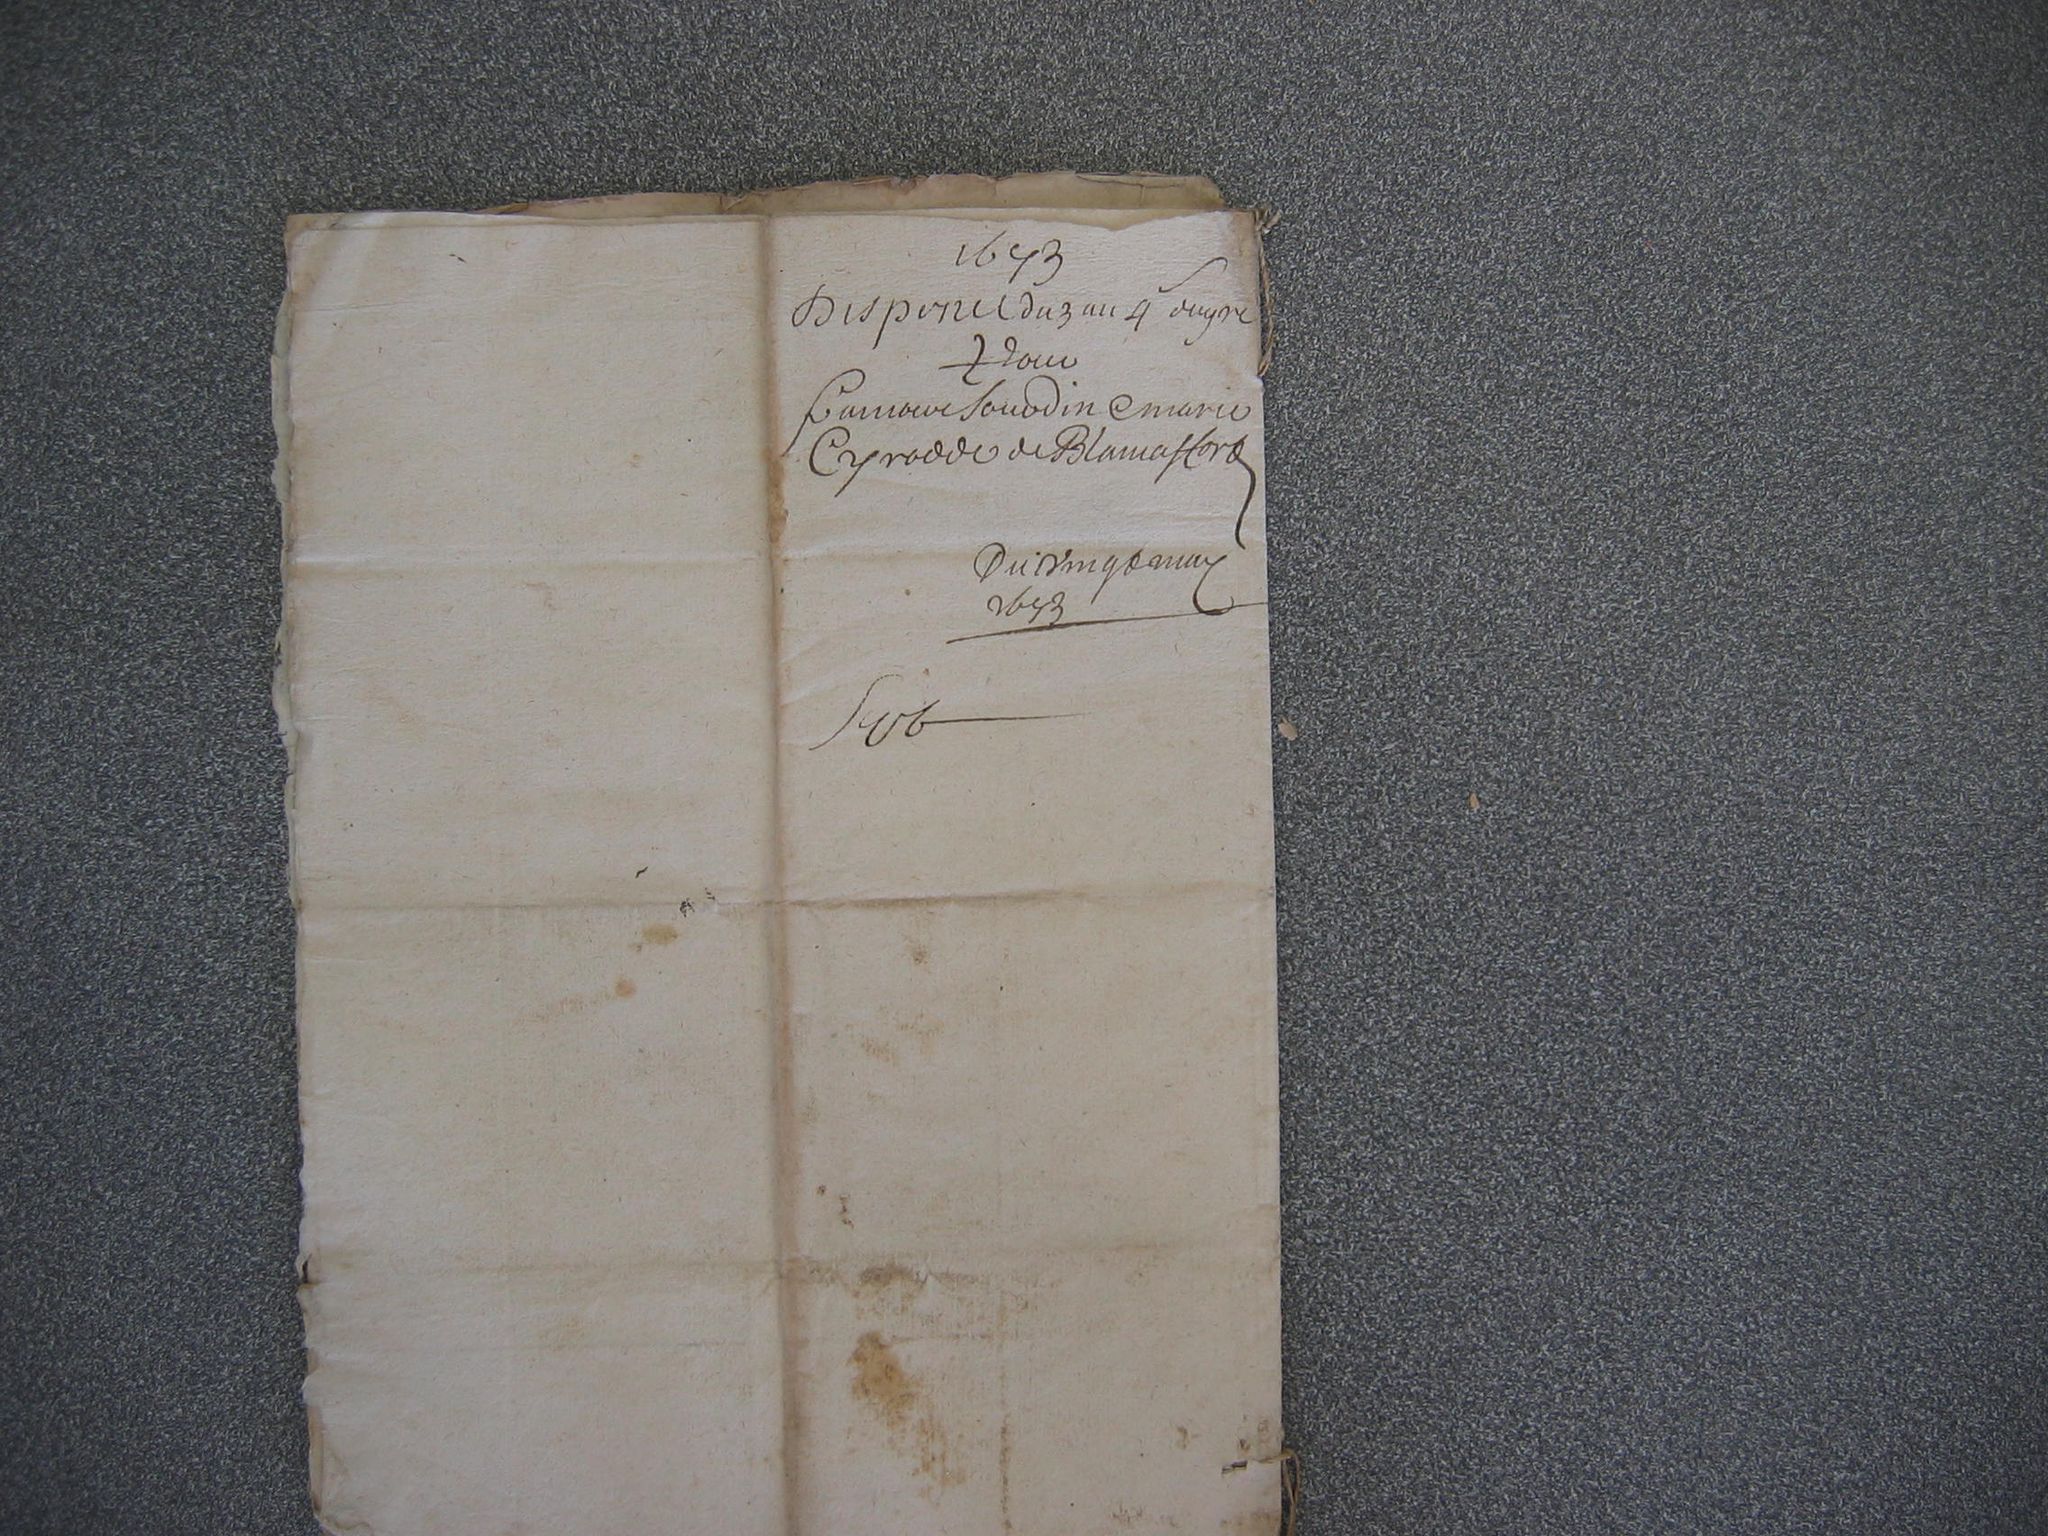 1673
Dispence du 3 au 4e degre
pour
Ramond Soucdin e marie
Cyrodde de Blamassord
Du vingt may
1673